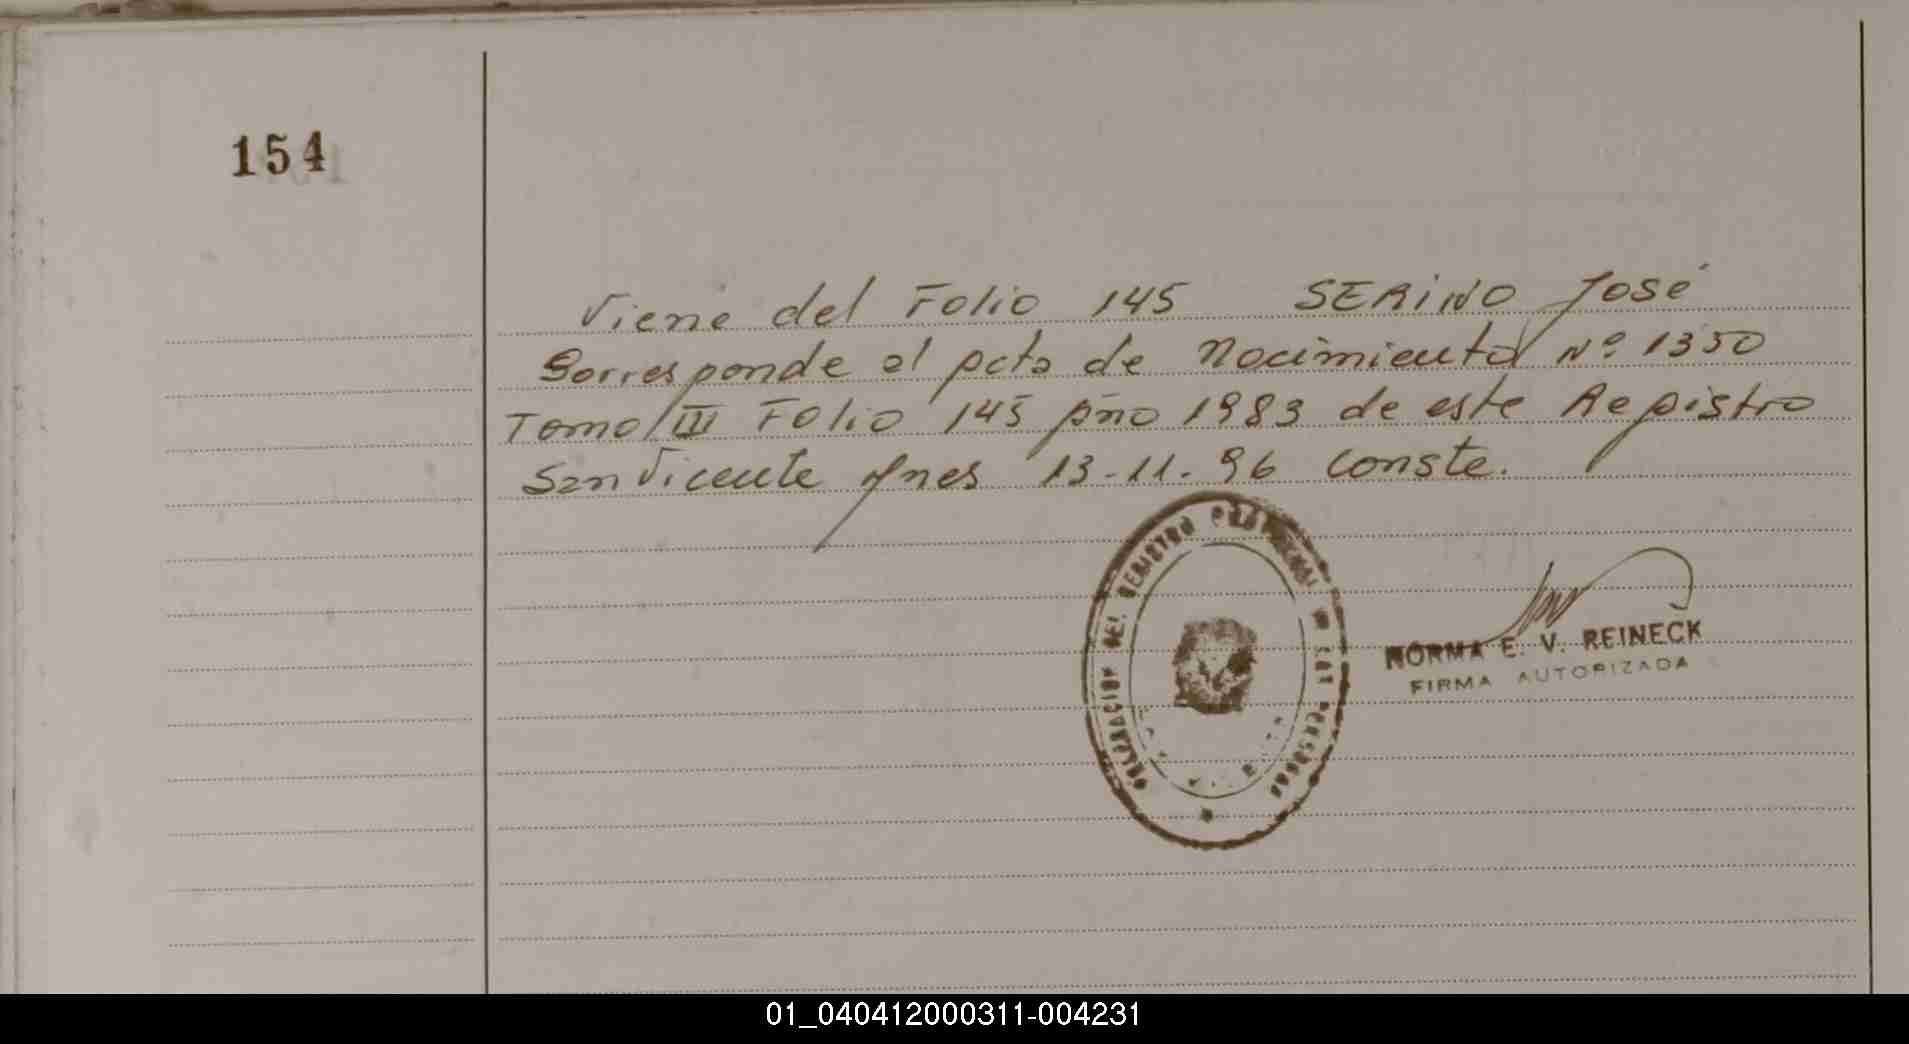 154
Viene del Folio 145 SERINO José
Corresponde al acta de Nacimiento Nº 1350
Tomo III Folio 145 año 1983 de este Registro
San Vicente Mnes 13-11-96 conste.
DELEGACION DEL REGISTRO PROVINCIAL DE LAS PERSONAS
NORMA E. V. REINECK
FIRMA AUTORIZADA
01_040412000311-004231